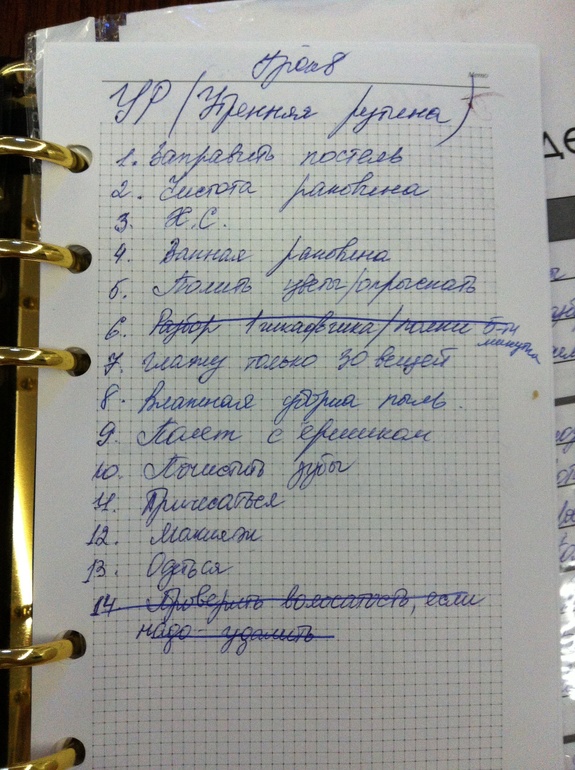 Урок 8
Memo
УР (Утренняя рутина)
1. Заправить постель
2. Чистота раковина
3. Х.С.
4. Ванная раковина
5. Полить цветы/опрыскать
6. Разбор 1 шкафчика/полки 5-ти
минутка
7. Глажу только 30 вещей
8. Влажная уборка пыль.
9. Полет с ёршиком
10. Почистить зубы
11. Причесаться
12. Макияж
13. Одеться
14. Проверить волосатость, если
надо - удалить